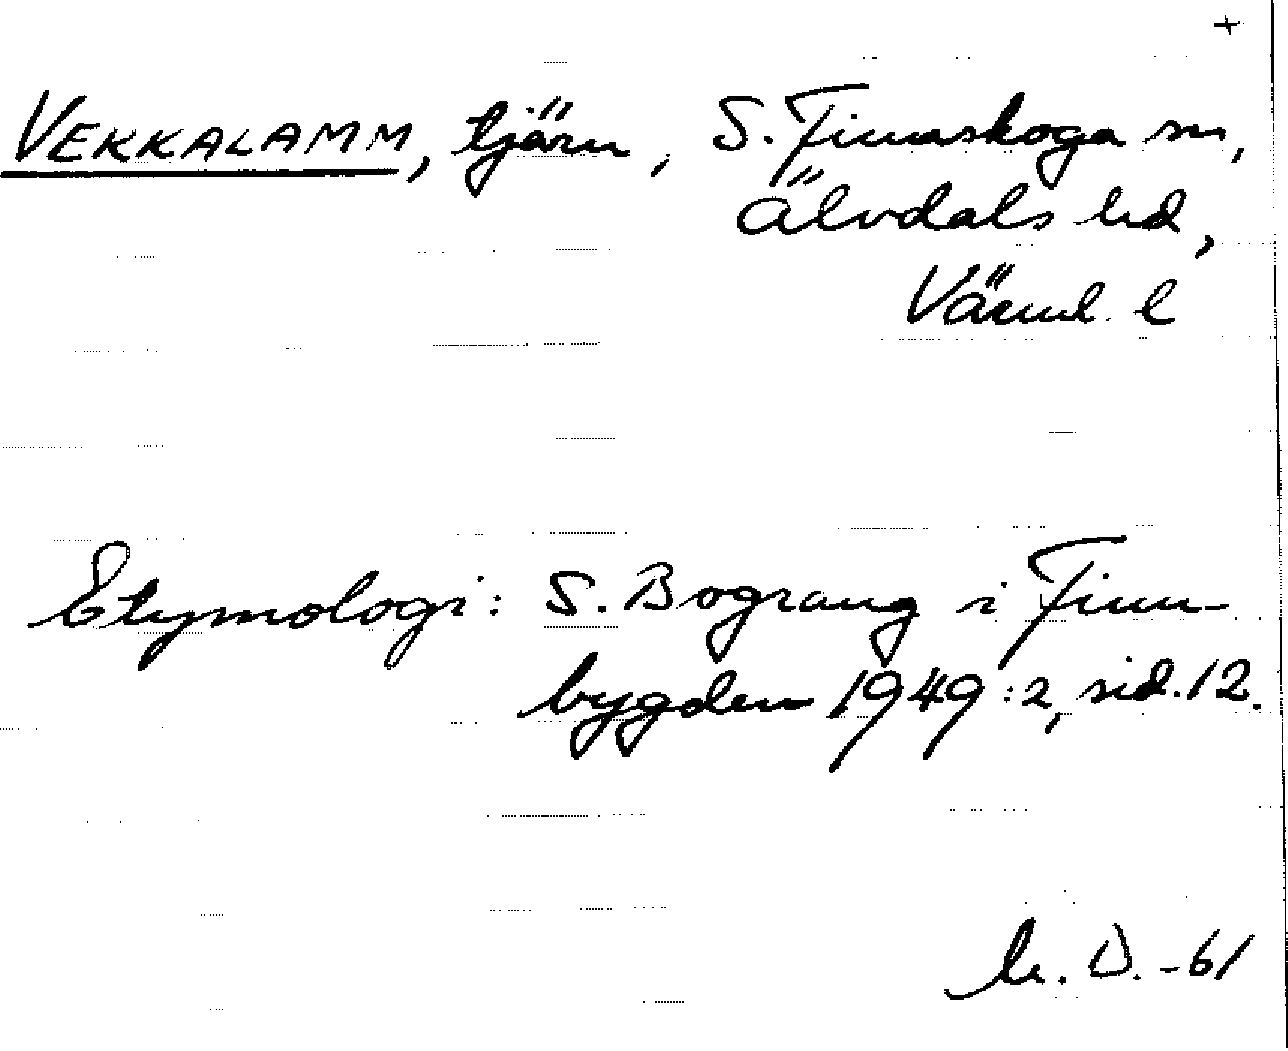 +
VEKKALAMM, tjärn, S. Finnskoga sn,
Älvdals hd,
Värml. l
Etymologi: S. Bograng i Finn-
bygden 1949:2, sid. 12.
D. -61